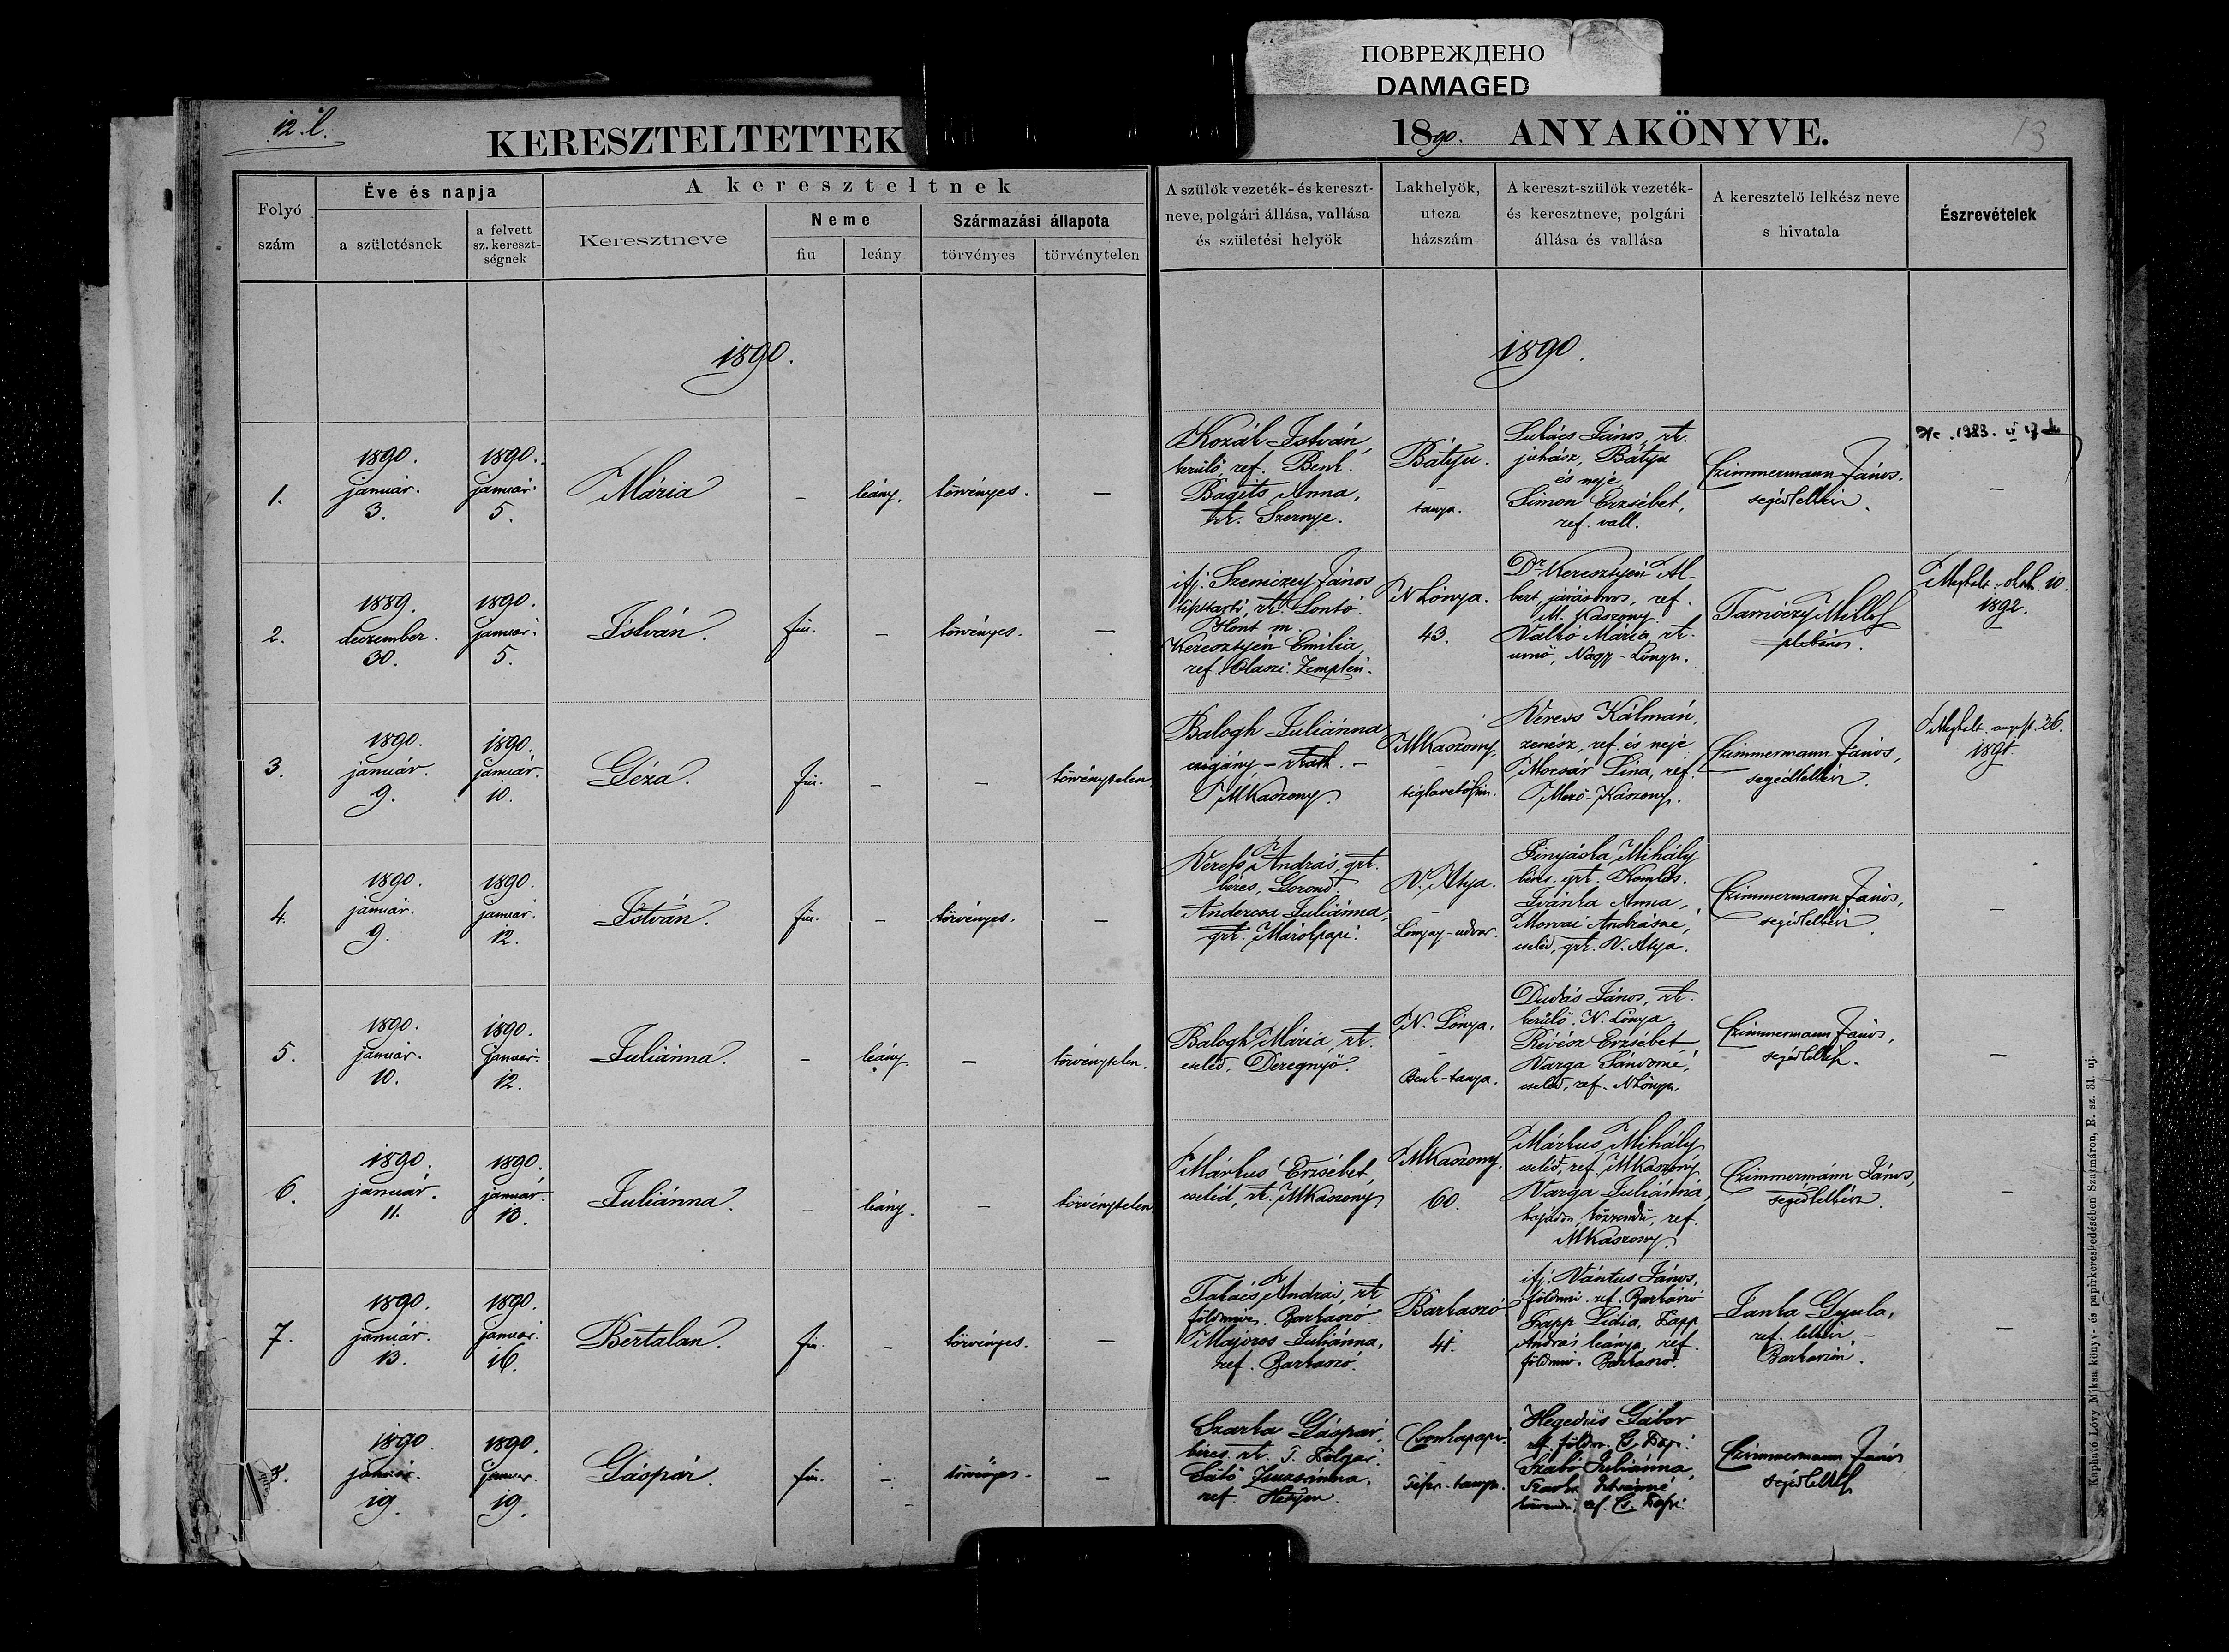 ПОВРЕЖДЕНО
DAMAGED
12. l.
KERESZTELTETTEK
1890. ANYAKÖNYVE.
13
Folyó
szám
Éve és napja
a születésnek
a felvett
sz. kereszt-
ségnek
A kereszteltnek
Keresztneve
Neme
fiu
leány
Származási állapota
törvényes
törvénytelen
A szülök vezeték- és kereszt-
neve, polgári állása, vallása
és születési helyök
Lakhelyök,
utcza
házszám
A kereszt-szülök vezeték-
és keresztneve, polgári
állása és vallása
A keresztelő lelkész neve
s hivatala
Észrevételek
1890.
1890.
1.
1890.
január.
3.
1890.
január.
5.
Mária
–
leány.
törvényes.
–
Kozák István,
kerülő, ref. Benk.
Bagits Anna,
rk. Szernye.
Bátyu.
–
tanya.
Lukács János, rk.
juhász, Bátyu
és neje
Simon Erzsébet,
ref. vall.
Czimmermann János.
segédlelkész.
1923.
–
2.
1889.
deczember.
30.
1890.
január.
5.
István.
fiu.
–
törvényes.
–
ifj. Szemczey János
rk. Lontó.
Hont m.
Keresztyén Emilia,
ref. Olaszi. Zemplén.
N Lónya.
43.
Dr Keresztyén Al-
bert, járásorvos, ref.
M. Kaszony.
Valkó Mária, rk.
urnő, Nagy-Lónya.
Tarnóczy Miklós
plébános.
Meghalt. okt. 10.
1892.
3.
1890.
január.
9.
1890.
január.
10.
Géza.
fiu.
–
–
törvénytelen.
Balogh Juliánna
czigány – rkath. –
MKaszony.
MKaszony.
–
Veress Kálmán,
zenész, ref. és neje
Mocsár Lina, ref.
Mező-Kászony.
Czimmermann János,
segédlelkész.
Meghalt. august. 26.
4.
1890.
január.
9.
1890.
január.
12.
István.
fiu.
–
törvényes.
–
Veress András, gkt.
béres, Gorond.
Andercsa Juliánna,
gkt. Márokpapi.
V. Atya.
–
Lónyay-udvar.
Mihály
béres. gkt. Komlós.
Ivánka Anna,
Morvai Andrásné,
cseléd, gkt. V. Atya.
Czimmermann János,
segédlelkész.
–
5.
1890.
január.
10.
1890.
január.
12.
Juliánna.
–
leány
–
törvénytelen.
Balogh Mária, rk.
cseléd, Deregnyő.
N. Lónya.
–
Benk-tanya.
Dudás János, rk.
kerülő. N. Lónya.
Révész Erzsébet,
Varga Sándorné,
cseléd, ref. NLónya.
Czimmermann János,
segédlelkész.
–
6.
1890.
január.
11.
1890.
január.
13.
Juliánna.
–
leány.
–
törvénytelen.
Márkus Erzsébet,
cseléd, rk. MKaszony.
MKaszony.
60.
Márkus Mihály
cseléd, ref. MKaszony.
Varga Juliánna,
hajadon, közrendü, ref.
MKaszony.
Czimmermann János,
segédlelkész.
–
7.
1890.
január.
13.
1890.
január.
16.
Bertalan.
fiu.
–
törvényes.
–
Takács András, rk
földmives. Barkaszó.
Majoros Juliánna,
ref. Barkaszó.
Barkaszó
41.
ifj. Vántus János,
földmü. ref. Barkaszó
Papp Lidia, Papp
András leánya, ref.
földmiv. Barkaszó.
Janka Gyula,
ref. lelkész –
–
8.
1890.
január.
19.
1890.
január.
19.
Gáspár.
fiu.
–
törvényes.
–
Szarka Gáspár,
béres. rk. T. Polgár.
Zsuzsánna,
ref. Hetyen.
Csonkapapi.
–
Hegedüs Gábor
ref. földm. Cs. Papi.
Szabó Juliánna,
közrendü, ref. Cs. Papi.
Czimmermann János
segédlelkész
Kapható Lővy Miksa könyv- és papirkereskedésében Szatmáron, R. sz. 31 uj.